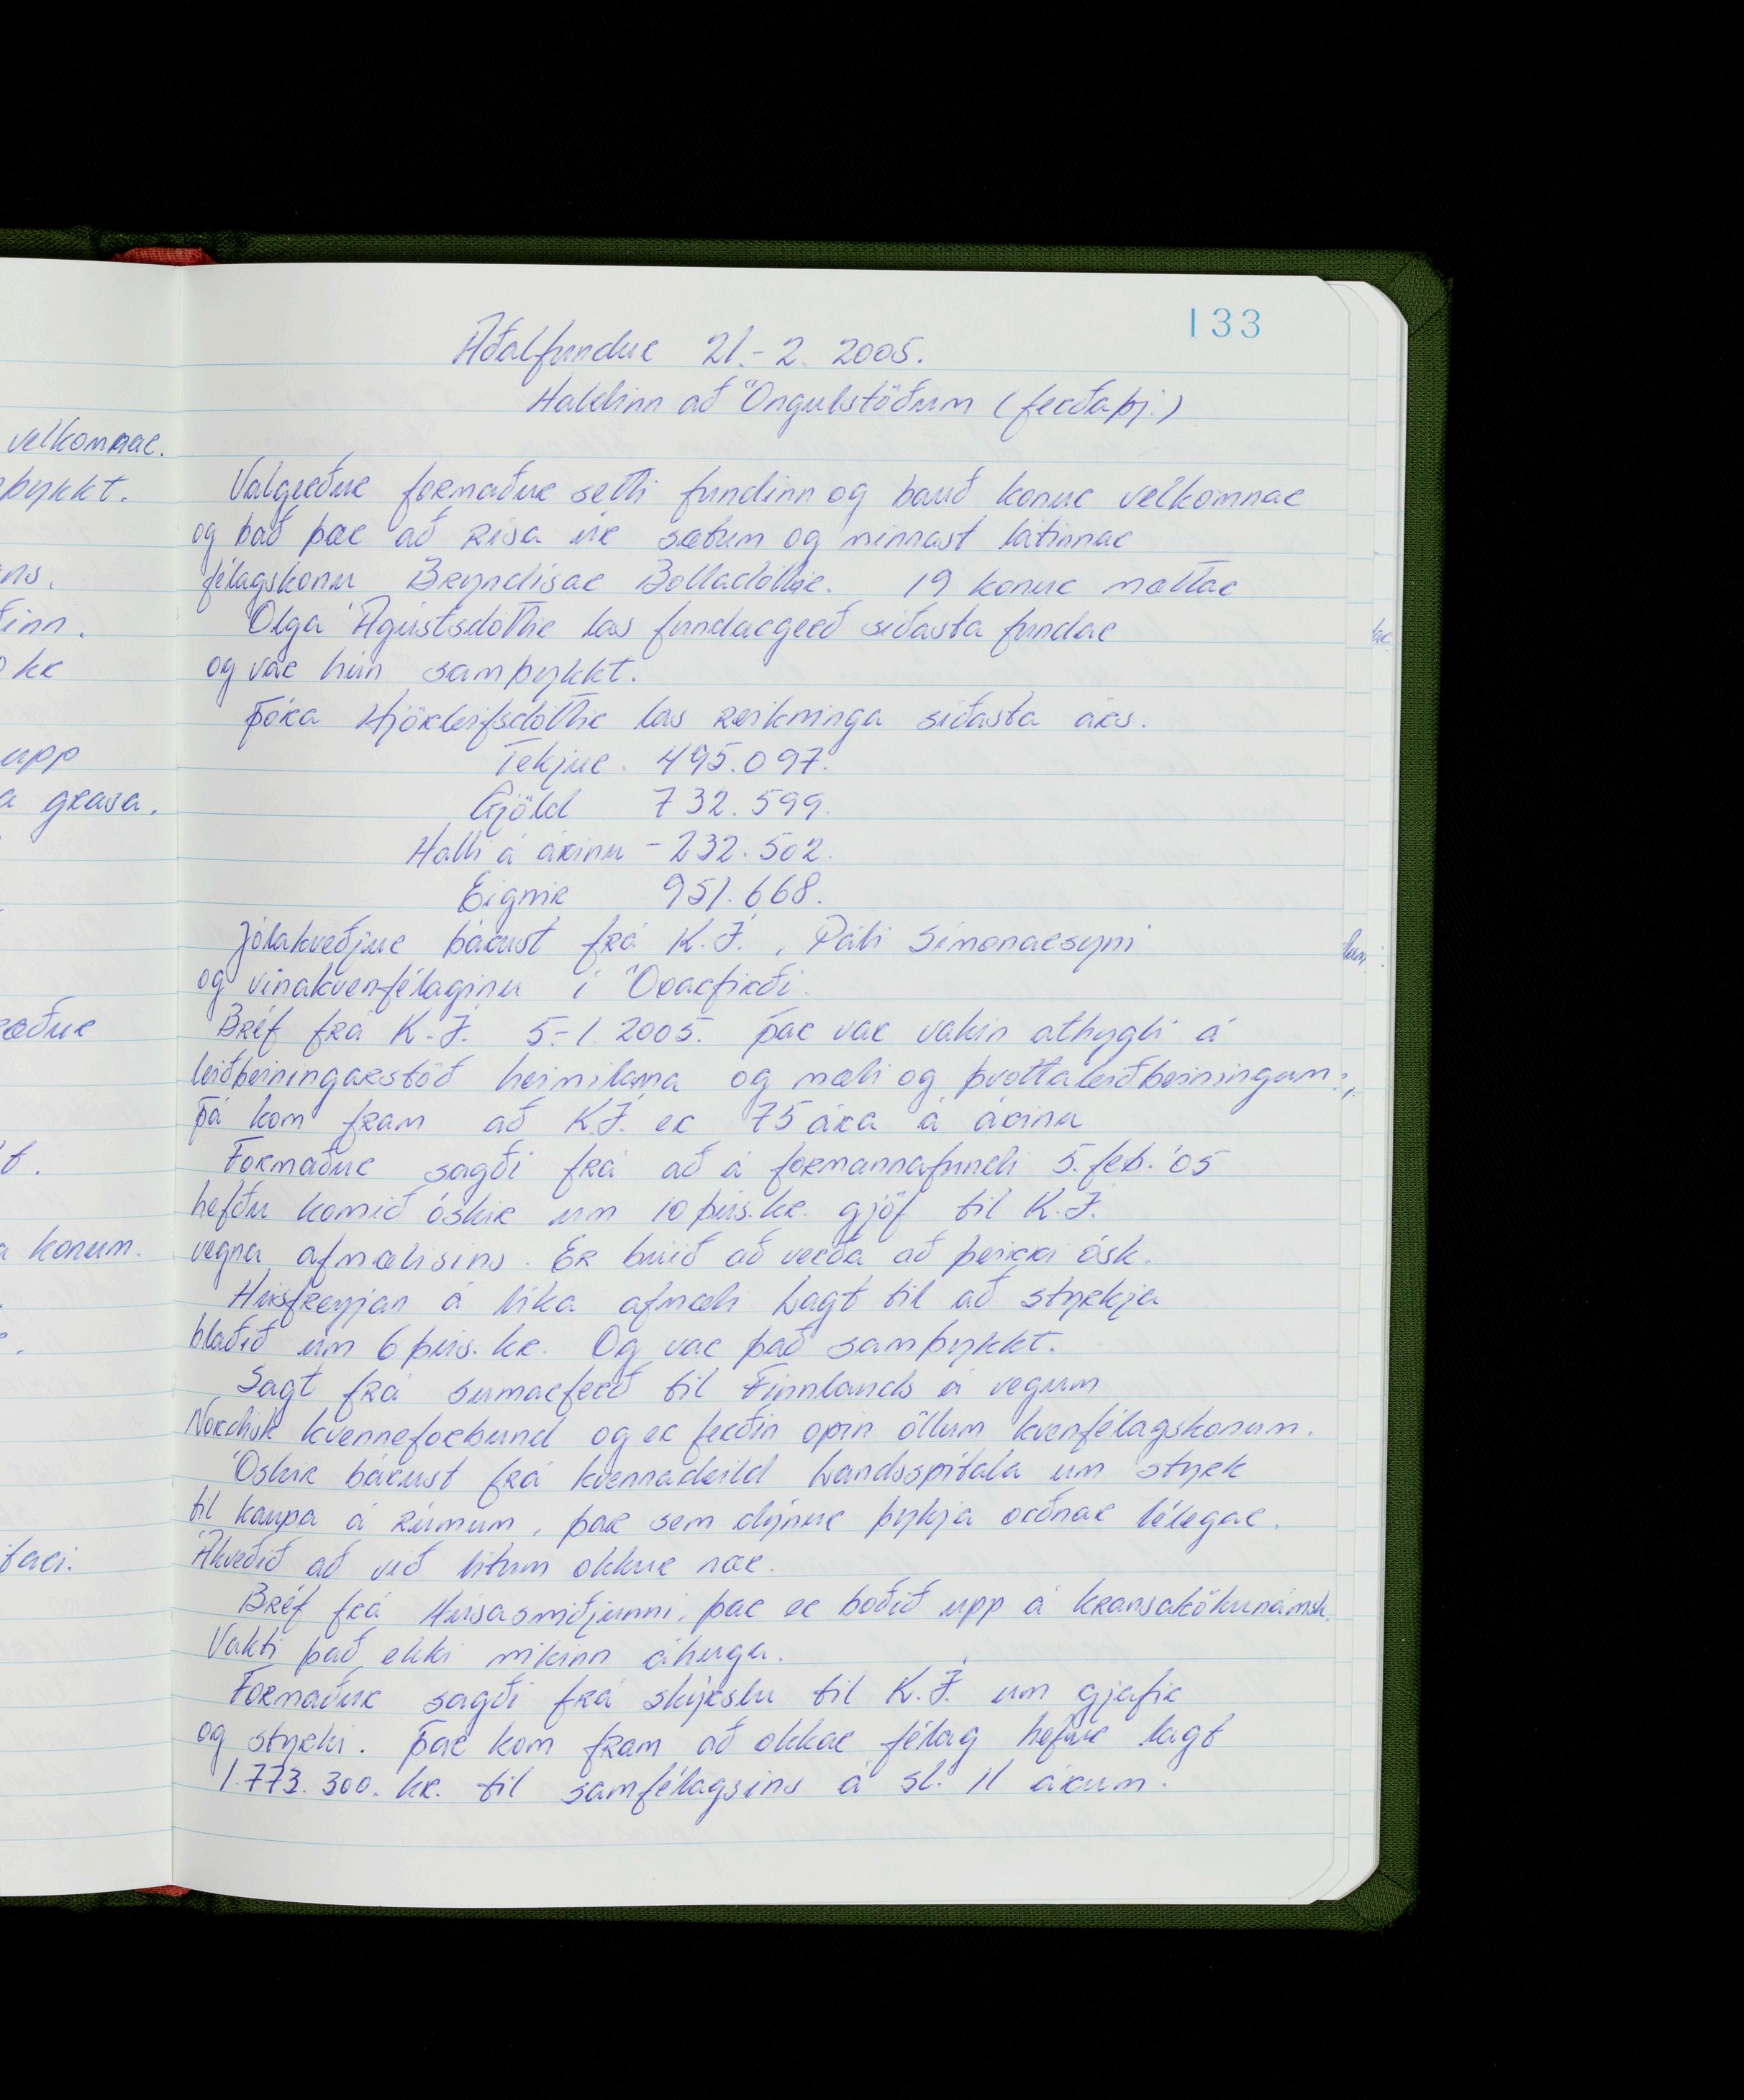 133
Aðalfundur 21.-2. 2005.
Haldinn að Öngulstöðum (ferðaþj.)
Valgerður formaður setti fundinn og bauð konur velkomnar
og bað þær að rísa úr sætum og minnast látinnar
félagskonu Bryndísar Bolladóttir. 19 konur mættar
Olga Ágústsdóttir las fundargerð síðasta fundar
og var hún samþykkt.
Þóra Hjörleifsdóttir las reikninga síðasta árs.
Tekjur. 495.097.
Gjöld 732.599.
Halli á árinu - 232.502.
Eignir 951.668.
Jólakveðjur bárust frá K.Í., Páli Símonarsyni
og vinakvenfélaginu í Öxarfirði.
Bréf frá K.Í. 5.-1 2005. Þar var vakin athygli á
leiðbeiningarstöð heimilanna og mæli og þvottaleiðbeiningum.
Þá kom fram að K.Í. er 75 ára á árinu
Formaður sagði frá að á formannafundi 5. feb. '05
hefðu komið óskir um 10 þús.kr. gjöf til K.Í.
vegna afmælisins. Er búið að verða að þeirri ósk.
Húsfreyjan á líka afmæli Lagt til að styrkja
blaðið um 6 þús. kr. Og var það samþykkt.
Sagt frá sumarferð til Finnlands á vegum
Nordisk kvenneforbund og er ferðin opin öllum kvenfélagskonum.
Óskir bárust frá kvennadeild Landsspítala um styrk
til kaupa á rúmum, þar sem dýnur þykja orðnar lélegar.
Ákveðið að við litum okkur nær.
Bréf frá Húsasmiðjunni, þar er boðið upp á kransakökunámsk.
Vakti það ekki mikinn áhuga.
Formaður sagði frá skýrslu til K.Í. um gjafir
og styrki. Þar kom fram að okkar félag hefur lagt
1.773.300. kr. til samfélagsins á sl. 11 árum.
velkomnar.
þykkt.
ns.
inn.
kr
upp
a grasa.
t.
a konum.